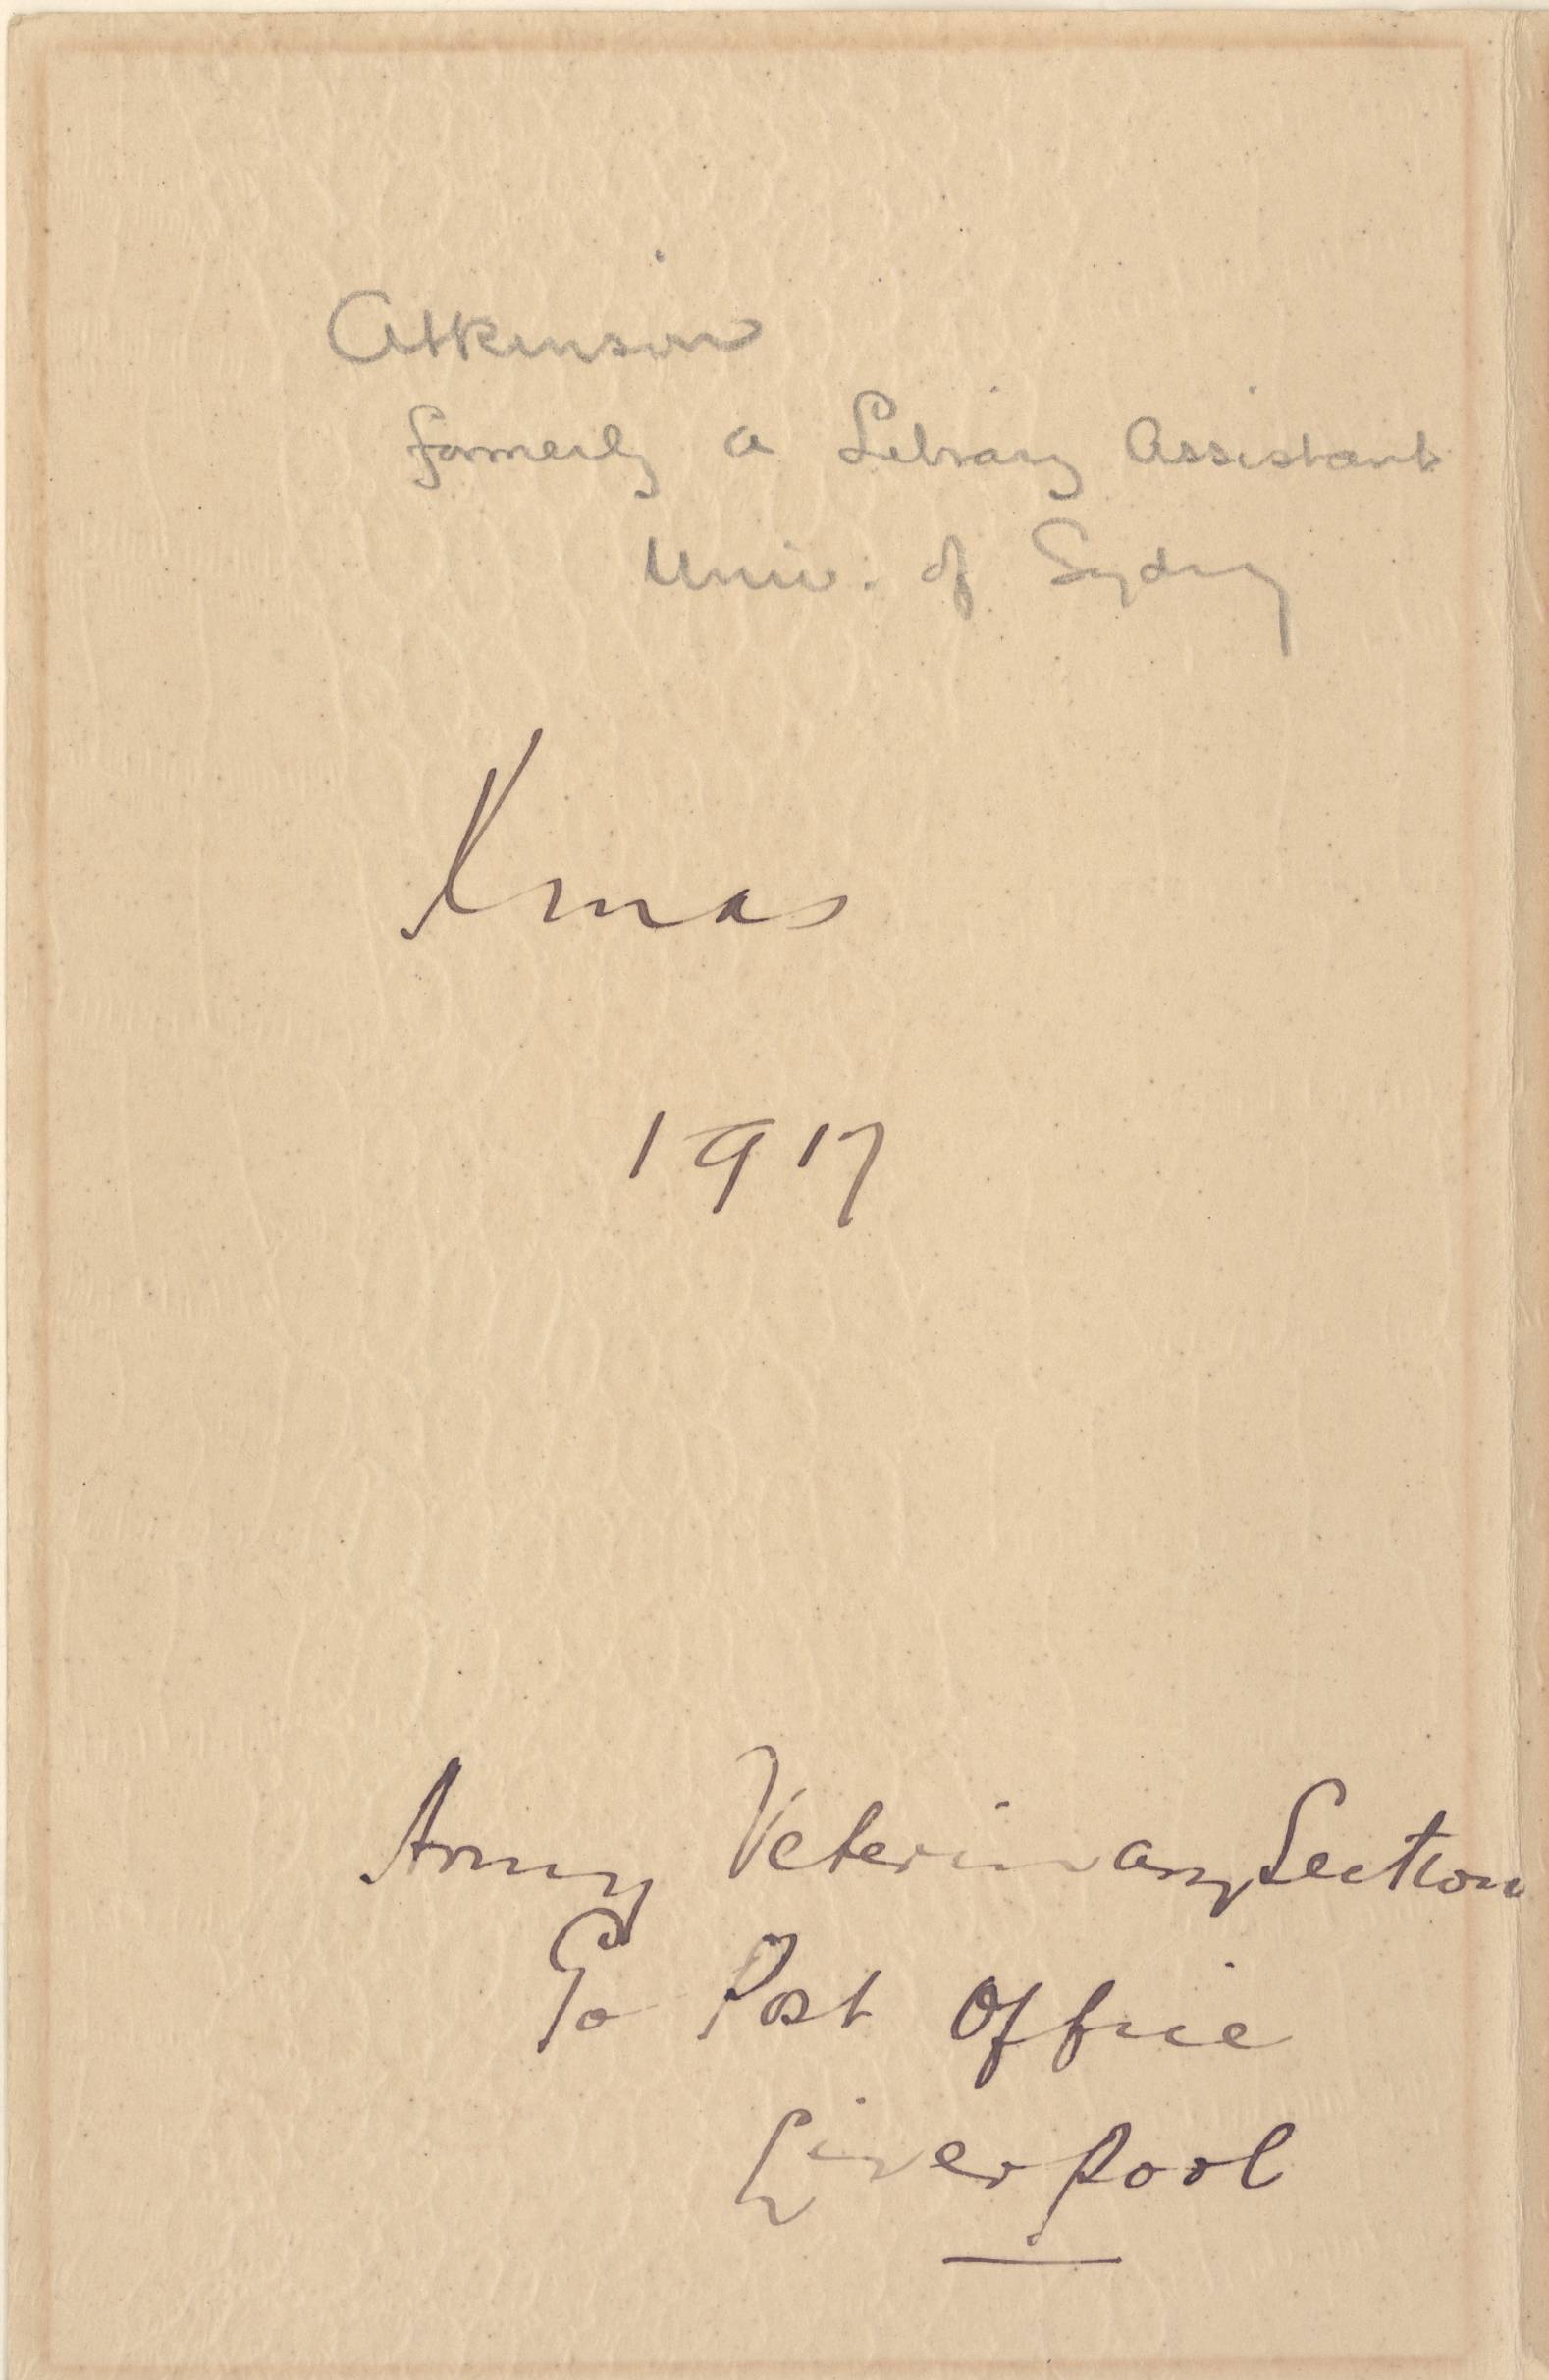 Atkinson
formerly a Library Assistant
Univ. of Sydney
Xmas
1917
Army Veterinary Section
Go Post Office
Liverpool